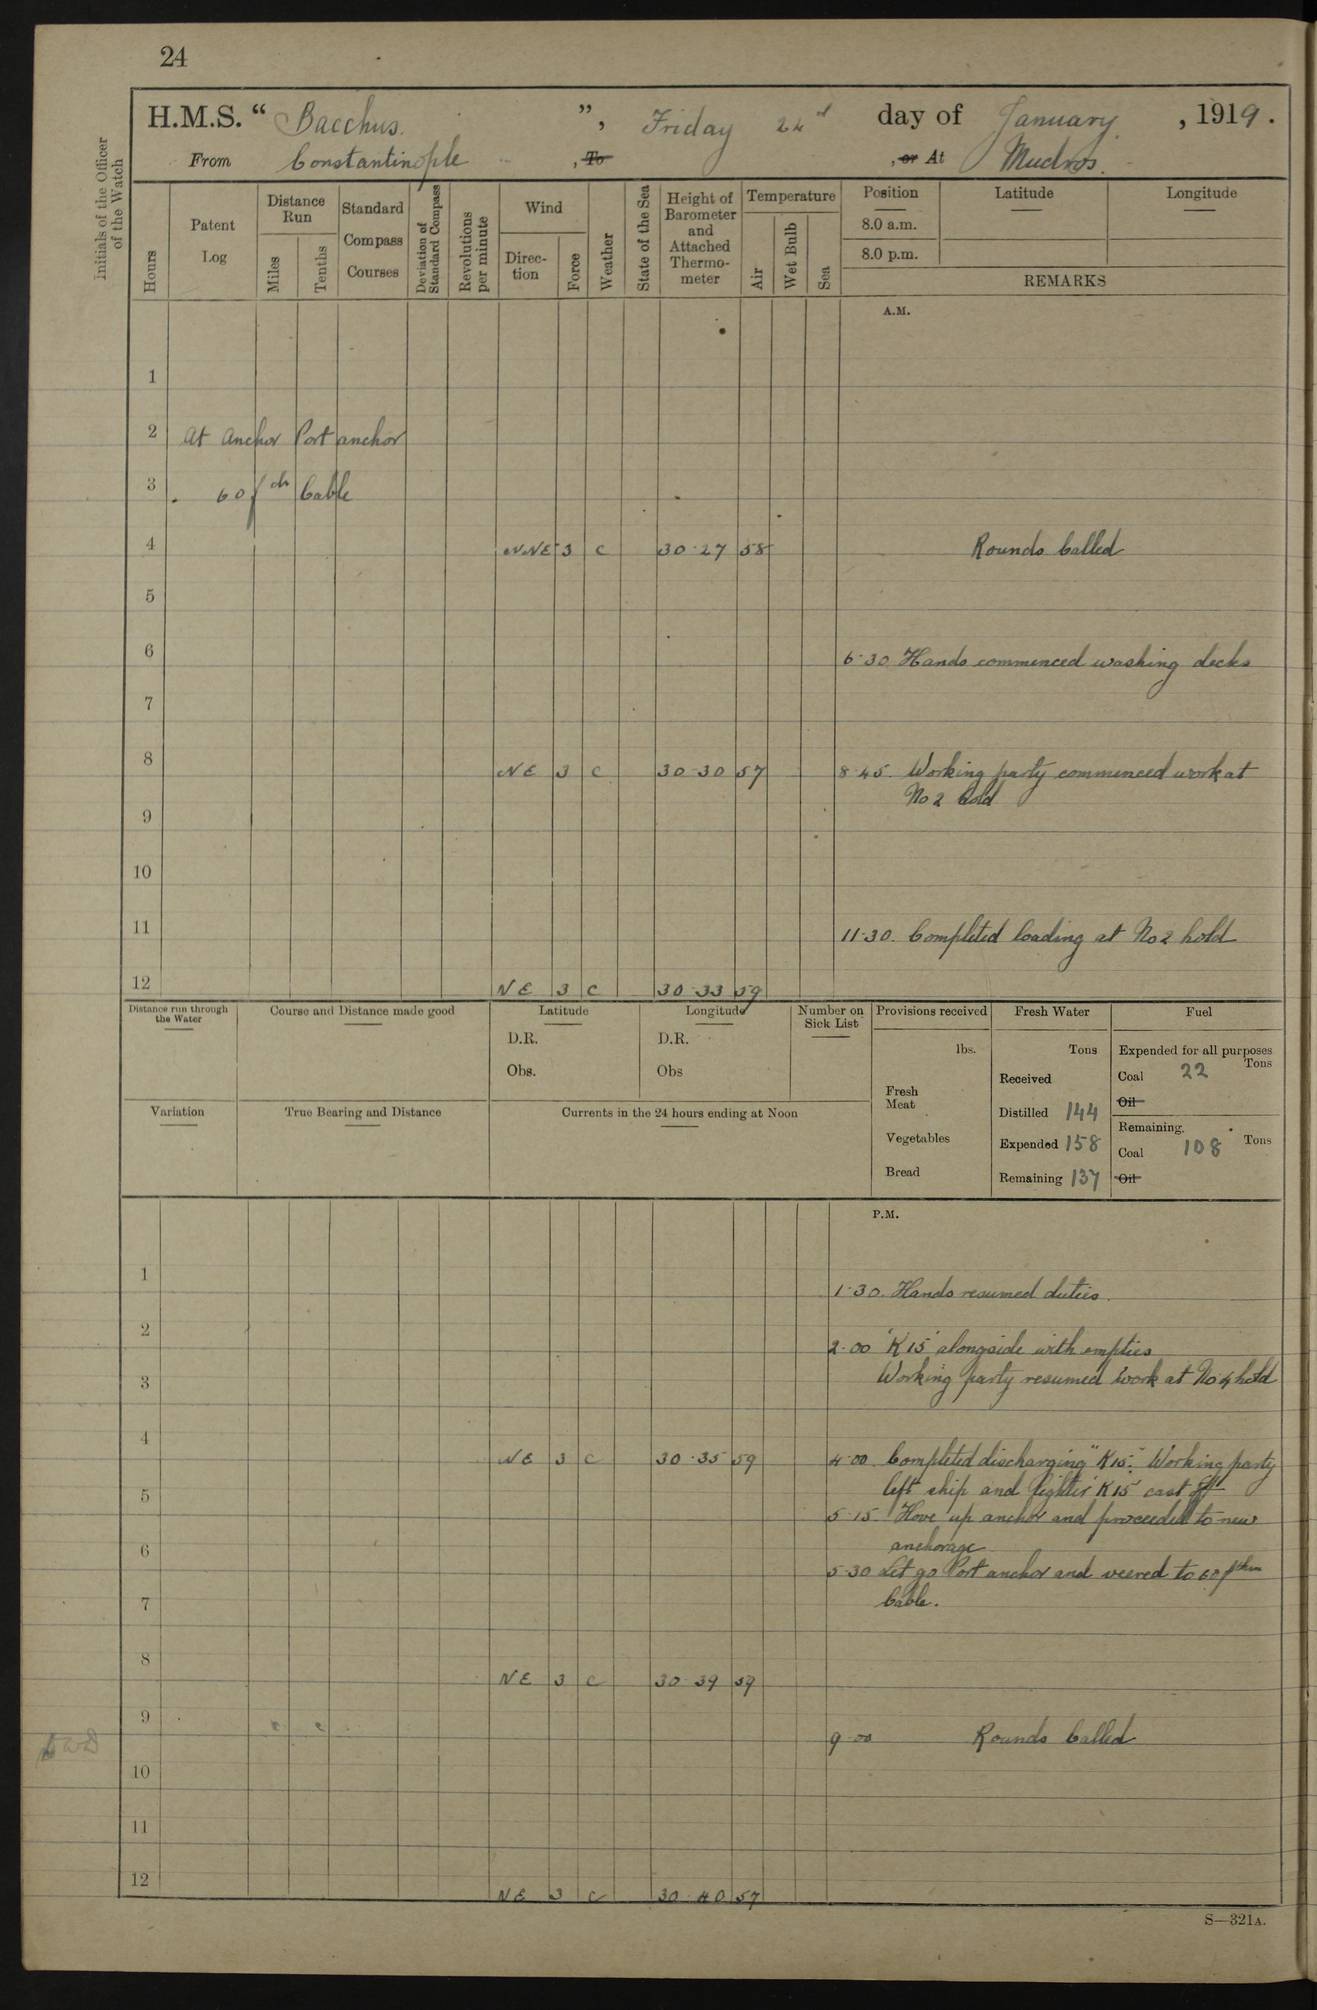 24
H.M.S. “ Bacchus. ”, Friday 24th day of January, 1919.
From Constantinople , To , or At Mudros.
Initials of the Officer of the Watch
Hours
Patent Log
Distance Run
Miles
Tenths
Standard Compass Courses
Deviation of Standard Compass
Revolutions per minute
Wind
Direc-tion
Force
Weather
State of the Sea
Height of Barometer and Attached Thermo-meter
Temperature
Air
Wet Bulb
Sea
Position
Latitude
Longitude
8.0 a.m.
8.0 p.m.
REMARKS
A.M.
1
2 At Anchor Port anchor
3 60 fth Cable
4 NNE 3 c 30·27 58 Rounds Called
5
6 6·30 Hands commenced washing decks
7
8 NE 3 c 30·30 57 8·45. Working party commenced work at
No 2 hold
9
10
11 11·30. Completed loading at No 2 hold
12 NE 3 c 30·33 59
Distance run through the Water
Course and Distance made good
Latitude
D.R.
Obs.
Longitude
D.R.
Obs
Number on Sick List
Provisions received
lbs.
Fresh Meat
Vegetables
Bread
Fresh Water
Tons
Received
Distilled 144
Expended 158
Remaining 137
Fuel
Expended for all purposes
Coal 22 Tons
Oil
Remaining.
Coal 108 Tons
Oil
Variation
True Bearing and Distance
Currents in the 24 hours ending at Noon
P.M.
1 1·30. Hands resumed duties.
2 2·00 'K15' alongside with empties
Working party resumed work at No 4 hold
3
4 NE 3 c 30·35 59 4·00 Completed discharging "K15". Working party
left ship and lighter 'K15' cast off
5 5·15. Hove up anchor and proceeded to new
anchorage
6 5·30 Let go Port anchor and veered to 60 fthm
Cable.
7
8 NE 3 c 30·39 59
9 9·00 Rounds Called
10
11
12 NE 3 c 30·40 57
S—321A.